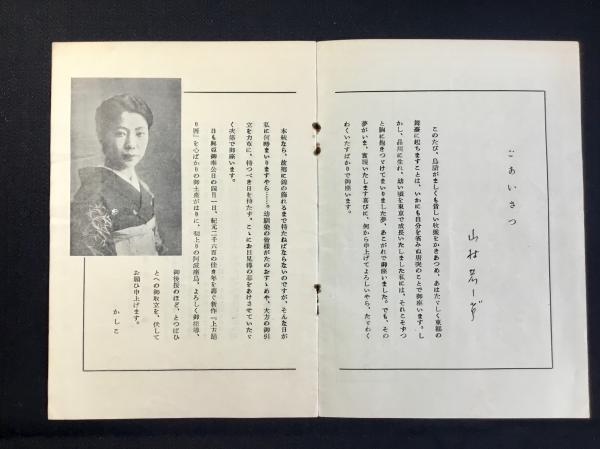 ごあいさつ
このたび、烏滸がましくも貧しい收穫をかきあつめ、あはたゞしく東都の
舞臺に起ちますことは、いかにも自分を省みぬ唐突のことで御座います。し
かし、品川に生れ、幼い頃を東京で成長いたしました私には、それこそずつ
と胸に抱きつゞけてまいりました夢、あこがれで御座いました。でも、その
夢がいま、實現いたします喜びに、何から申上げてよろしいやら、たゞわく
わくいたすばかりで御座います。
本統なら、故郷に錦の飾れるまで待たねばならないのですが、そんな日が
私に何時まいりますやら……。幼馴染の皆樣がたのおすゝめや、大方の御引
立を力草に、待つべき日を待たず、こゝにお目見得の幕をあけさせていたゞ
く次第で御座います。
日も興亞御奉公日の四月一日、紀元二千六百の佳き年を壽ぐ新作『上方踊
り暦』を心ばかりの御土産がはりに、初上りの阿波座鳥、よろしく御指導、
御後援のほど、とつぱひ
とへの御取立を、伏して
お願ひ申上げます。
かしこ